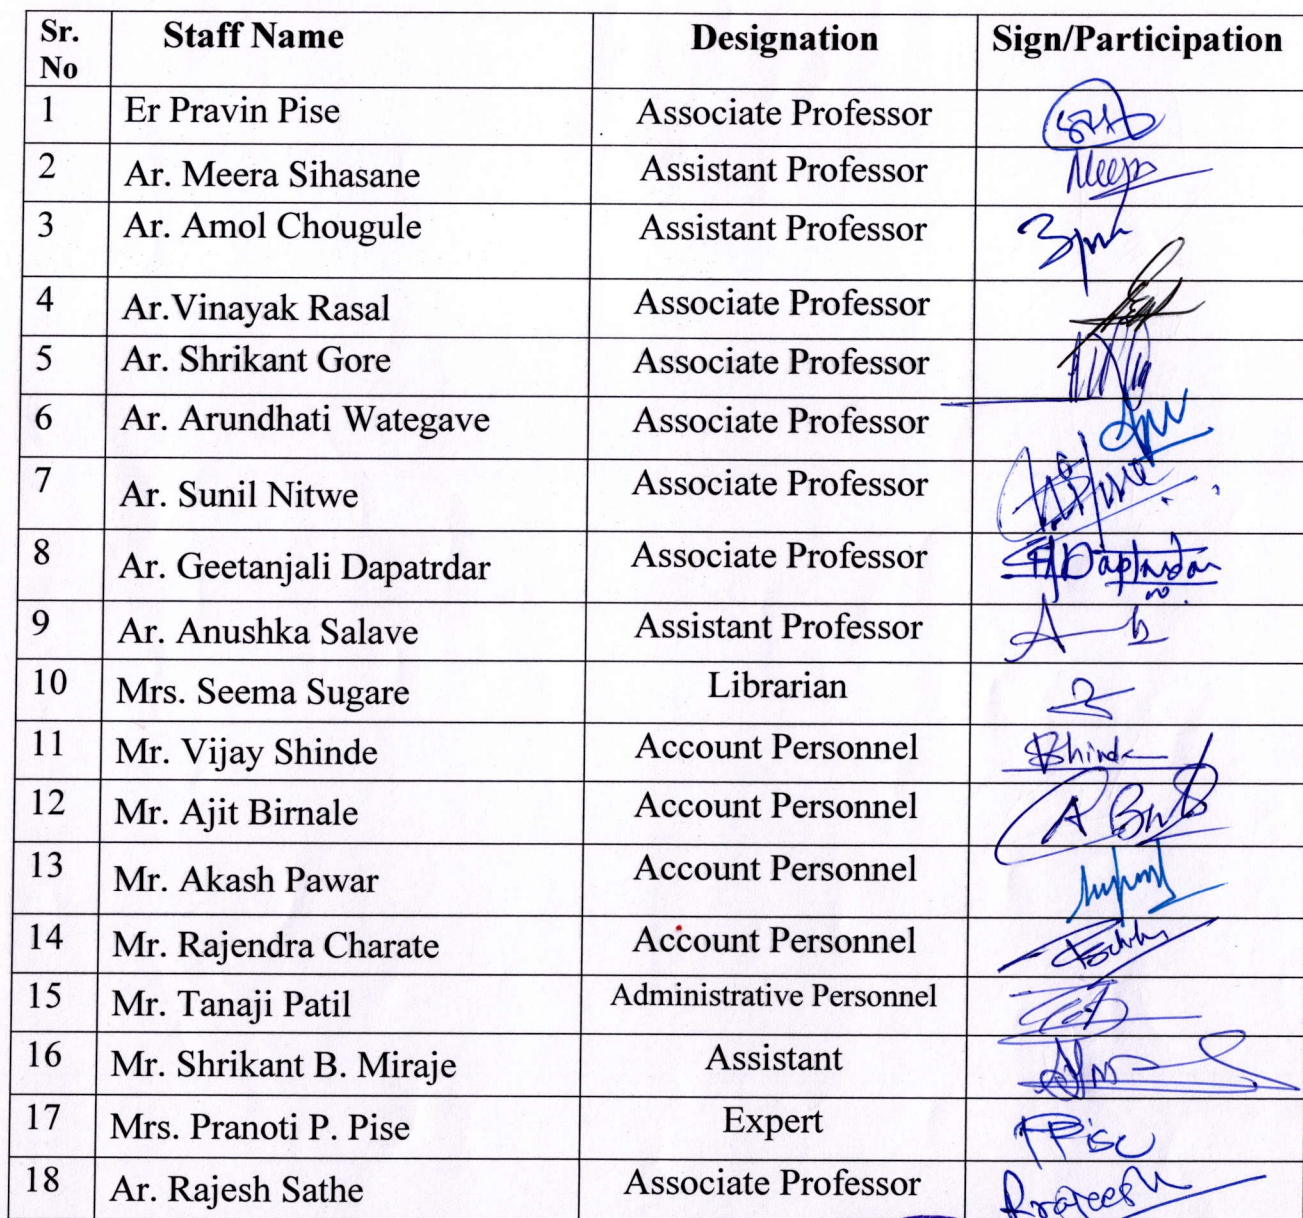 Sr. No Staff Name Designation Sign/Participation
1 Er Pravin Pise Associate Professor
2 Ar. Meera Sihasane Assistant Professor Meera
3 Ar. Amol Chougule Assistant Professor
4 Ar.Vinayak Rasal Associate Professor
5 Ar. Shrikant Gore Associate Professor
6 Ar. Arundhati Wategave Associate Professor
7 Ar. Sunil Nitwe Associate Professor
8 Ar. Geetanjali Dapatrdar Associate Professor
9 Ar. Anushka Salave Assistant Professor
10 Mrs. Seema Sugare Librarian
11 Mr. Vijay Shinde Account Personnel
12 Mr. Ajit Birnale Account Personnel
13 Mr. Akash Pawar Account Personnel
14 Mr. Rajendra Charate Account Personnel
15 Mr. Tanaji Patil Administrative Personnel
16 Mr. Shrikant B. Miraje Assistant
17 Mrs. Pranoti P. Pise Expert PPise
18 Ar. Rajesh Sathe Associate Professor